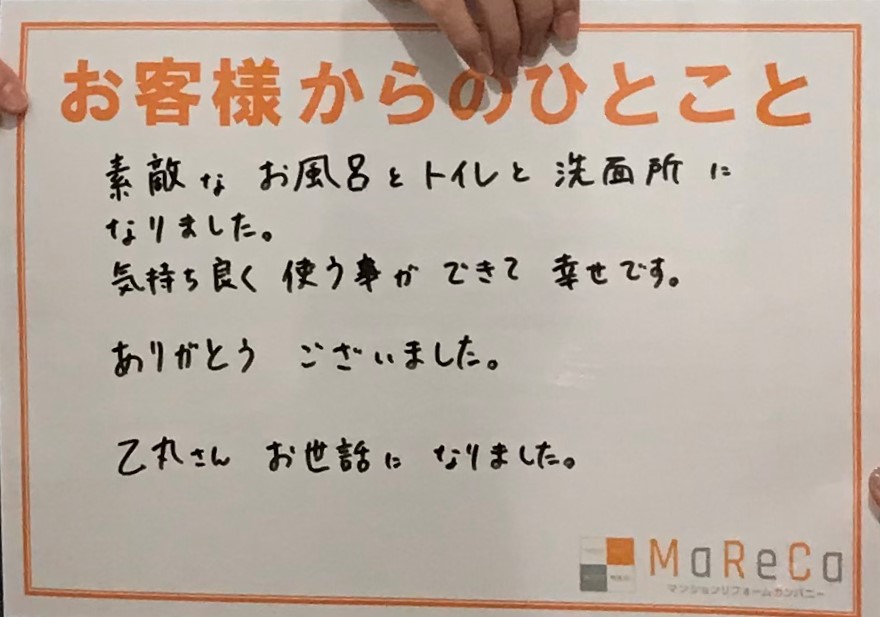 お客様からのひとこと
素敵な お風呂とトイレと 洗面所に
なりました。
気持ち良く 使う事が できて 幸せです。
ありがとう ございました。
乙丸さん お世話に なりました。
MaReCa
マンションリフォームカンパニー